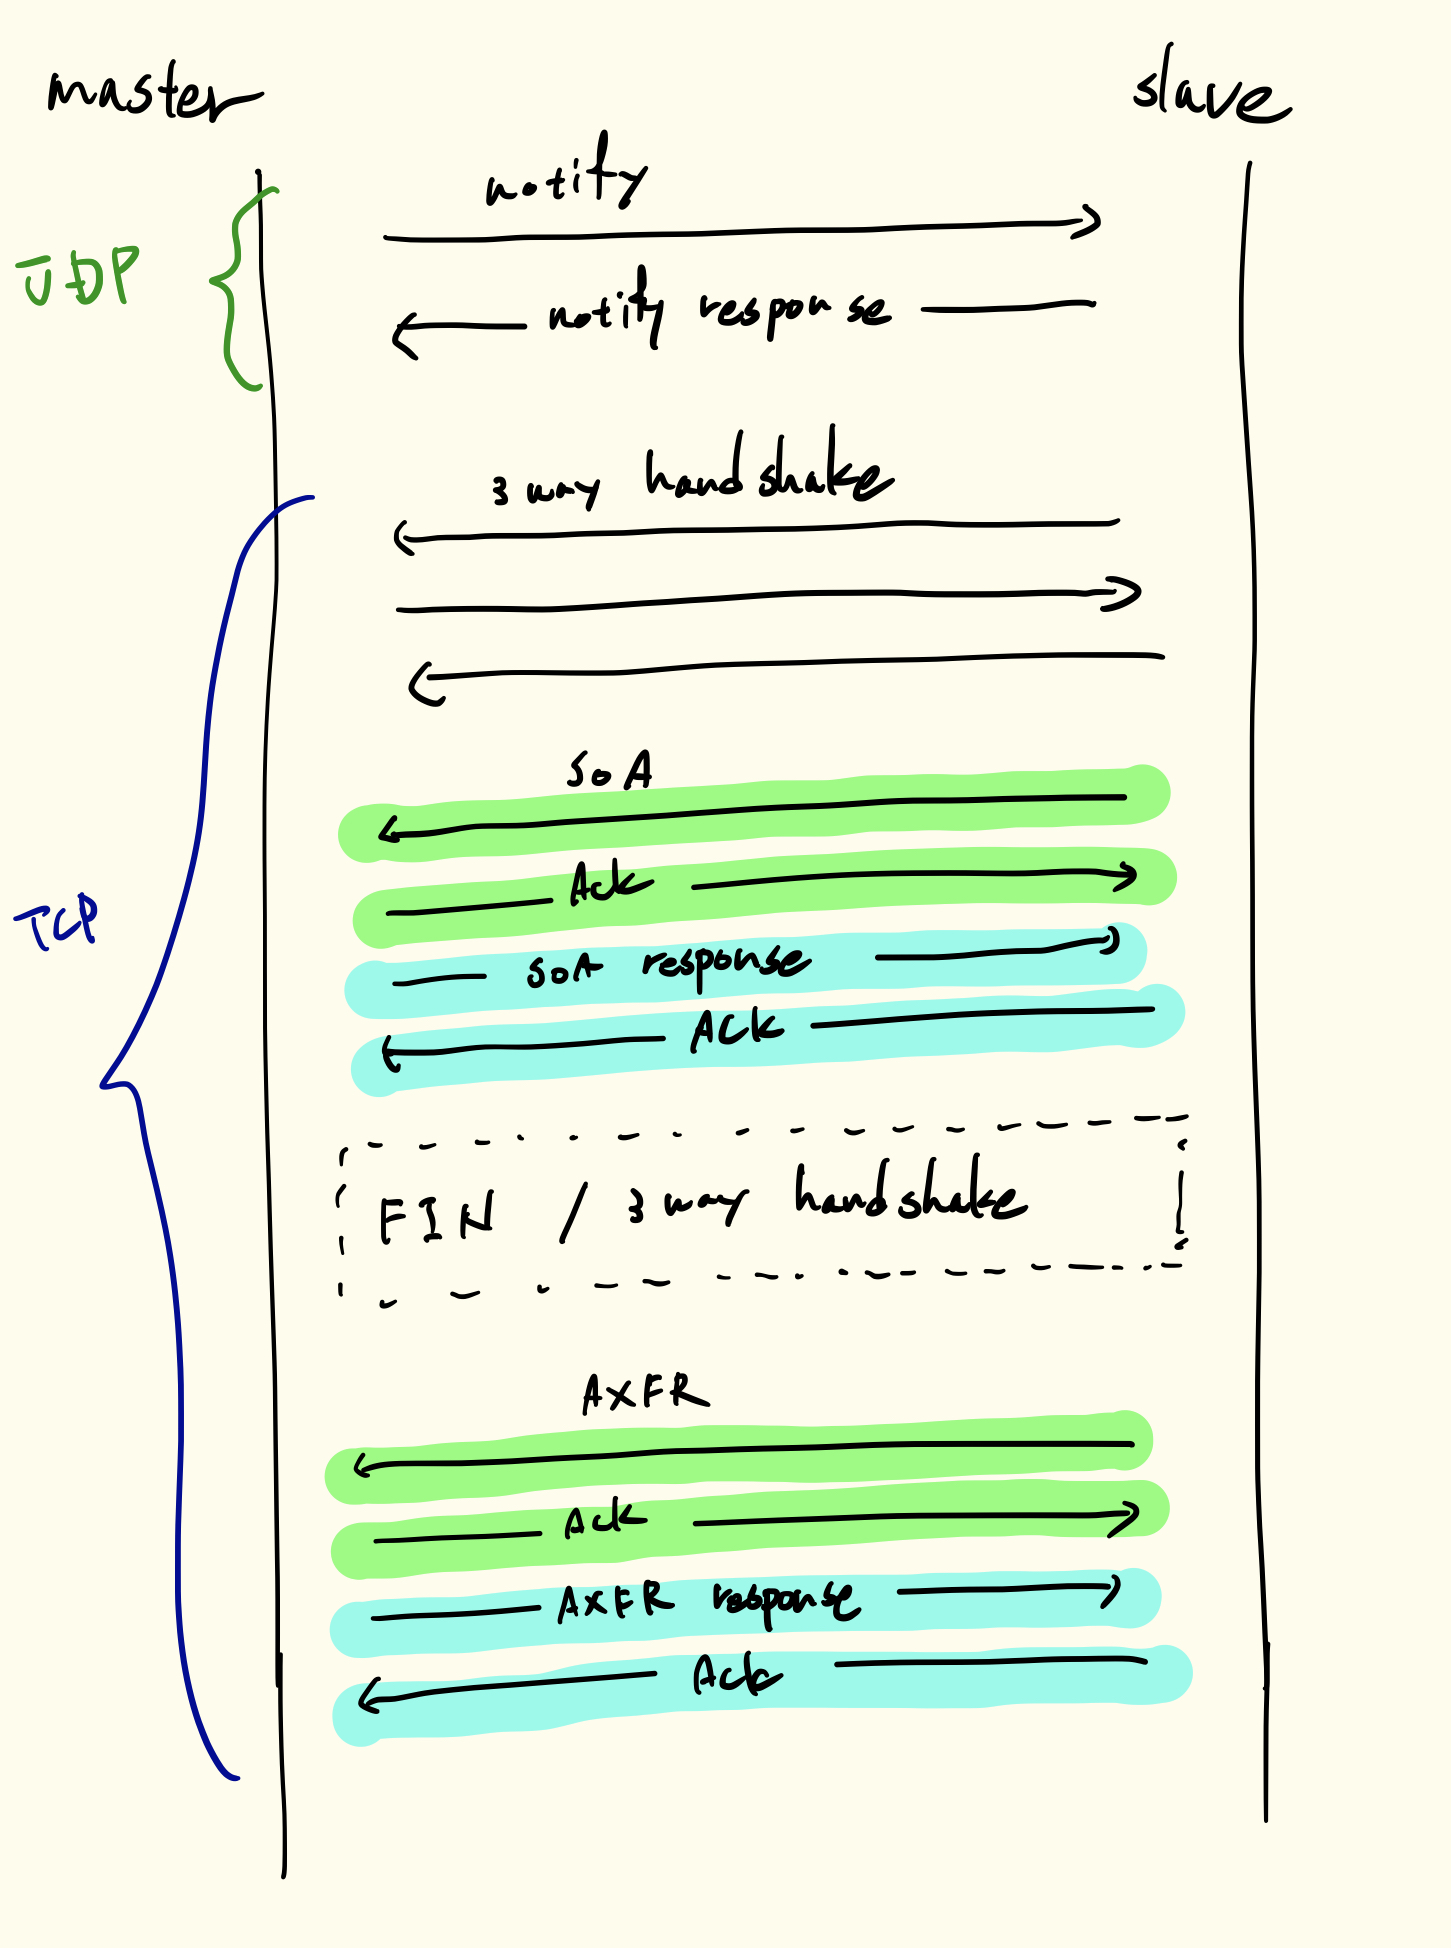 master slave
notify
UDP
notify response
3 way handshake
SoA
Ack
TCP
SoA response
ACk
FIN / 3 way handshake
AXFR
Ack
AXFR response
Ack